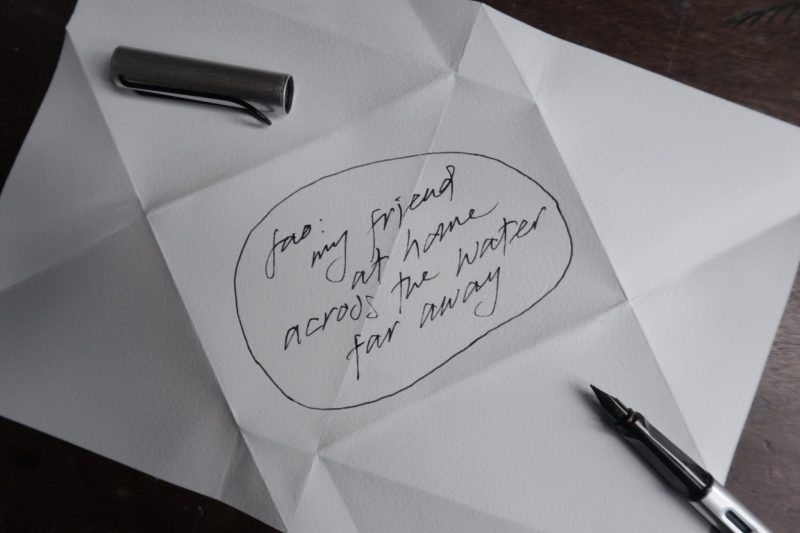 fao:
my friend
at home
across the water
far away